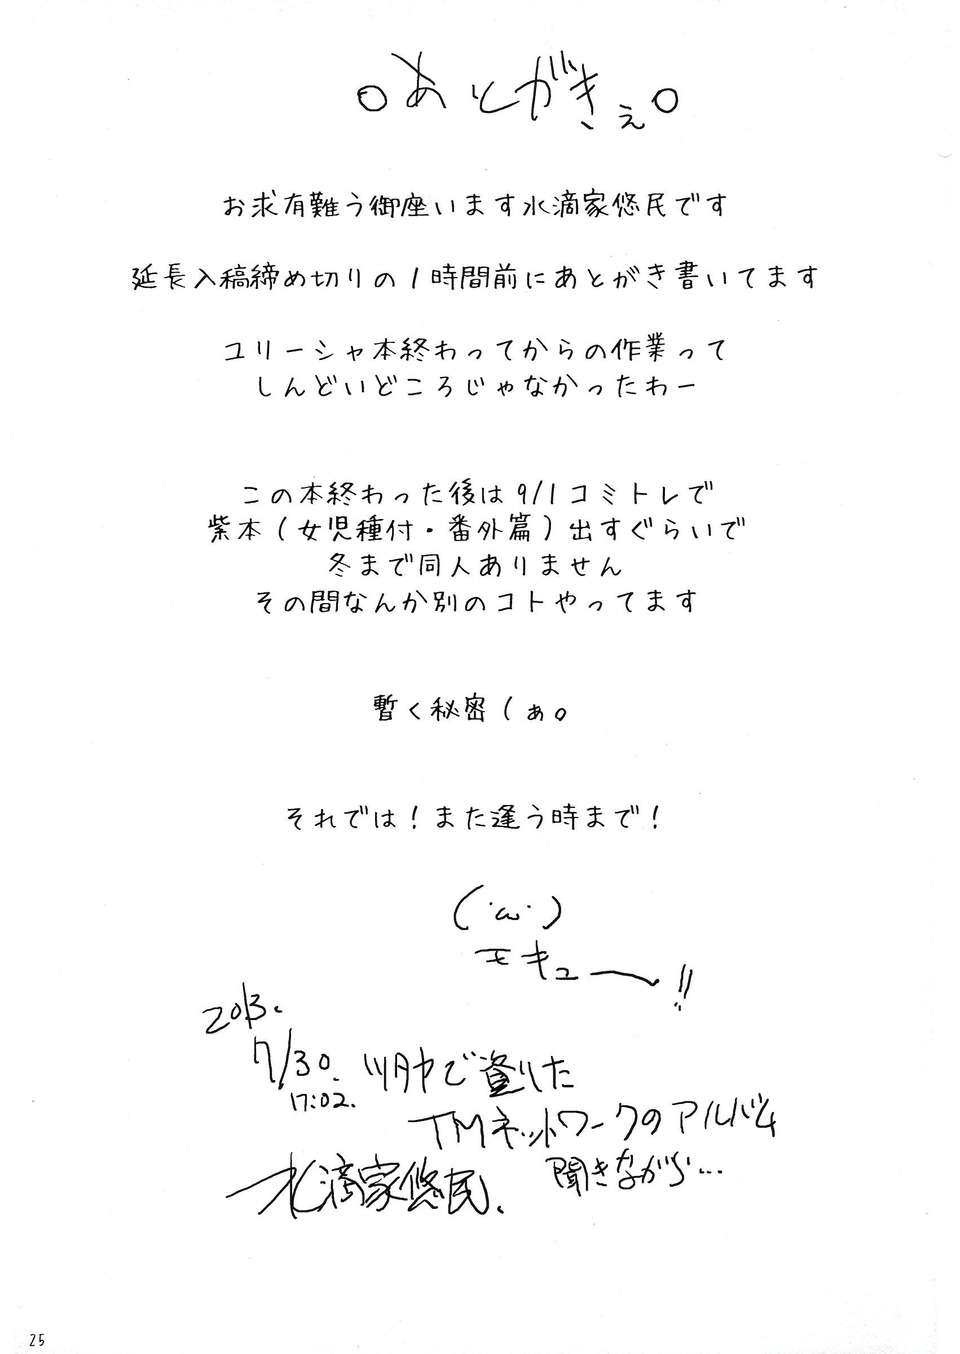 。あとがきぇ。
お求有難う御座います水滴家悠民です
延長入稿締め切りの1時間前にあとがき書いてます
ユリーシャ本終わってからの作業って
しんどいどころじゃなかったわー
この本終わった後は9/1コミトレで
紫本(女児種付・番外篇)出すぐらいで
冬まで同人ありません
その間なんか別のコトやってます
暫く秘密(ぁ。
それでは!また逢う時まで!
(・ω・)
モキュー!!
2013.
7/30.
17:02.
TMネットワークのアルバム
聞きながら…
水滴家悠民.
25